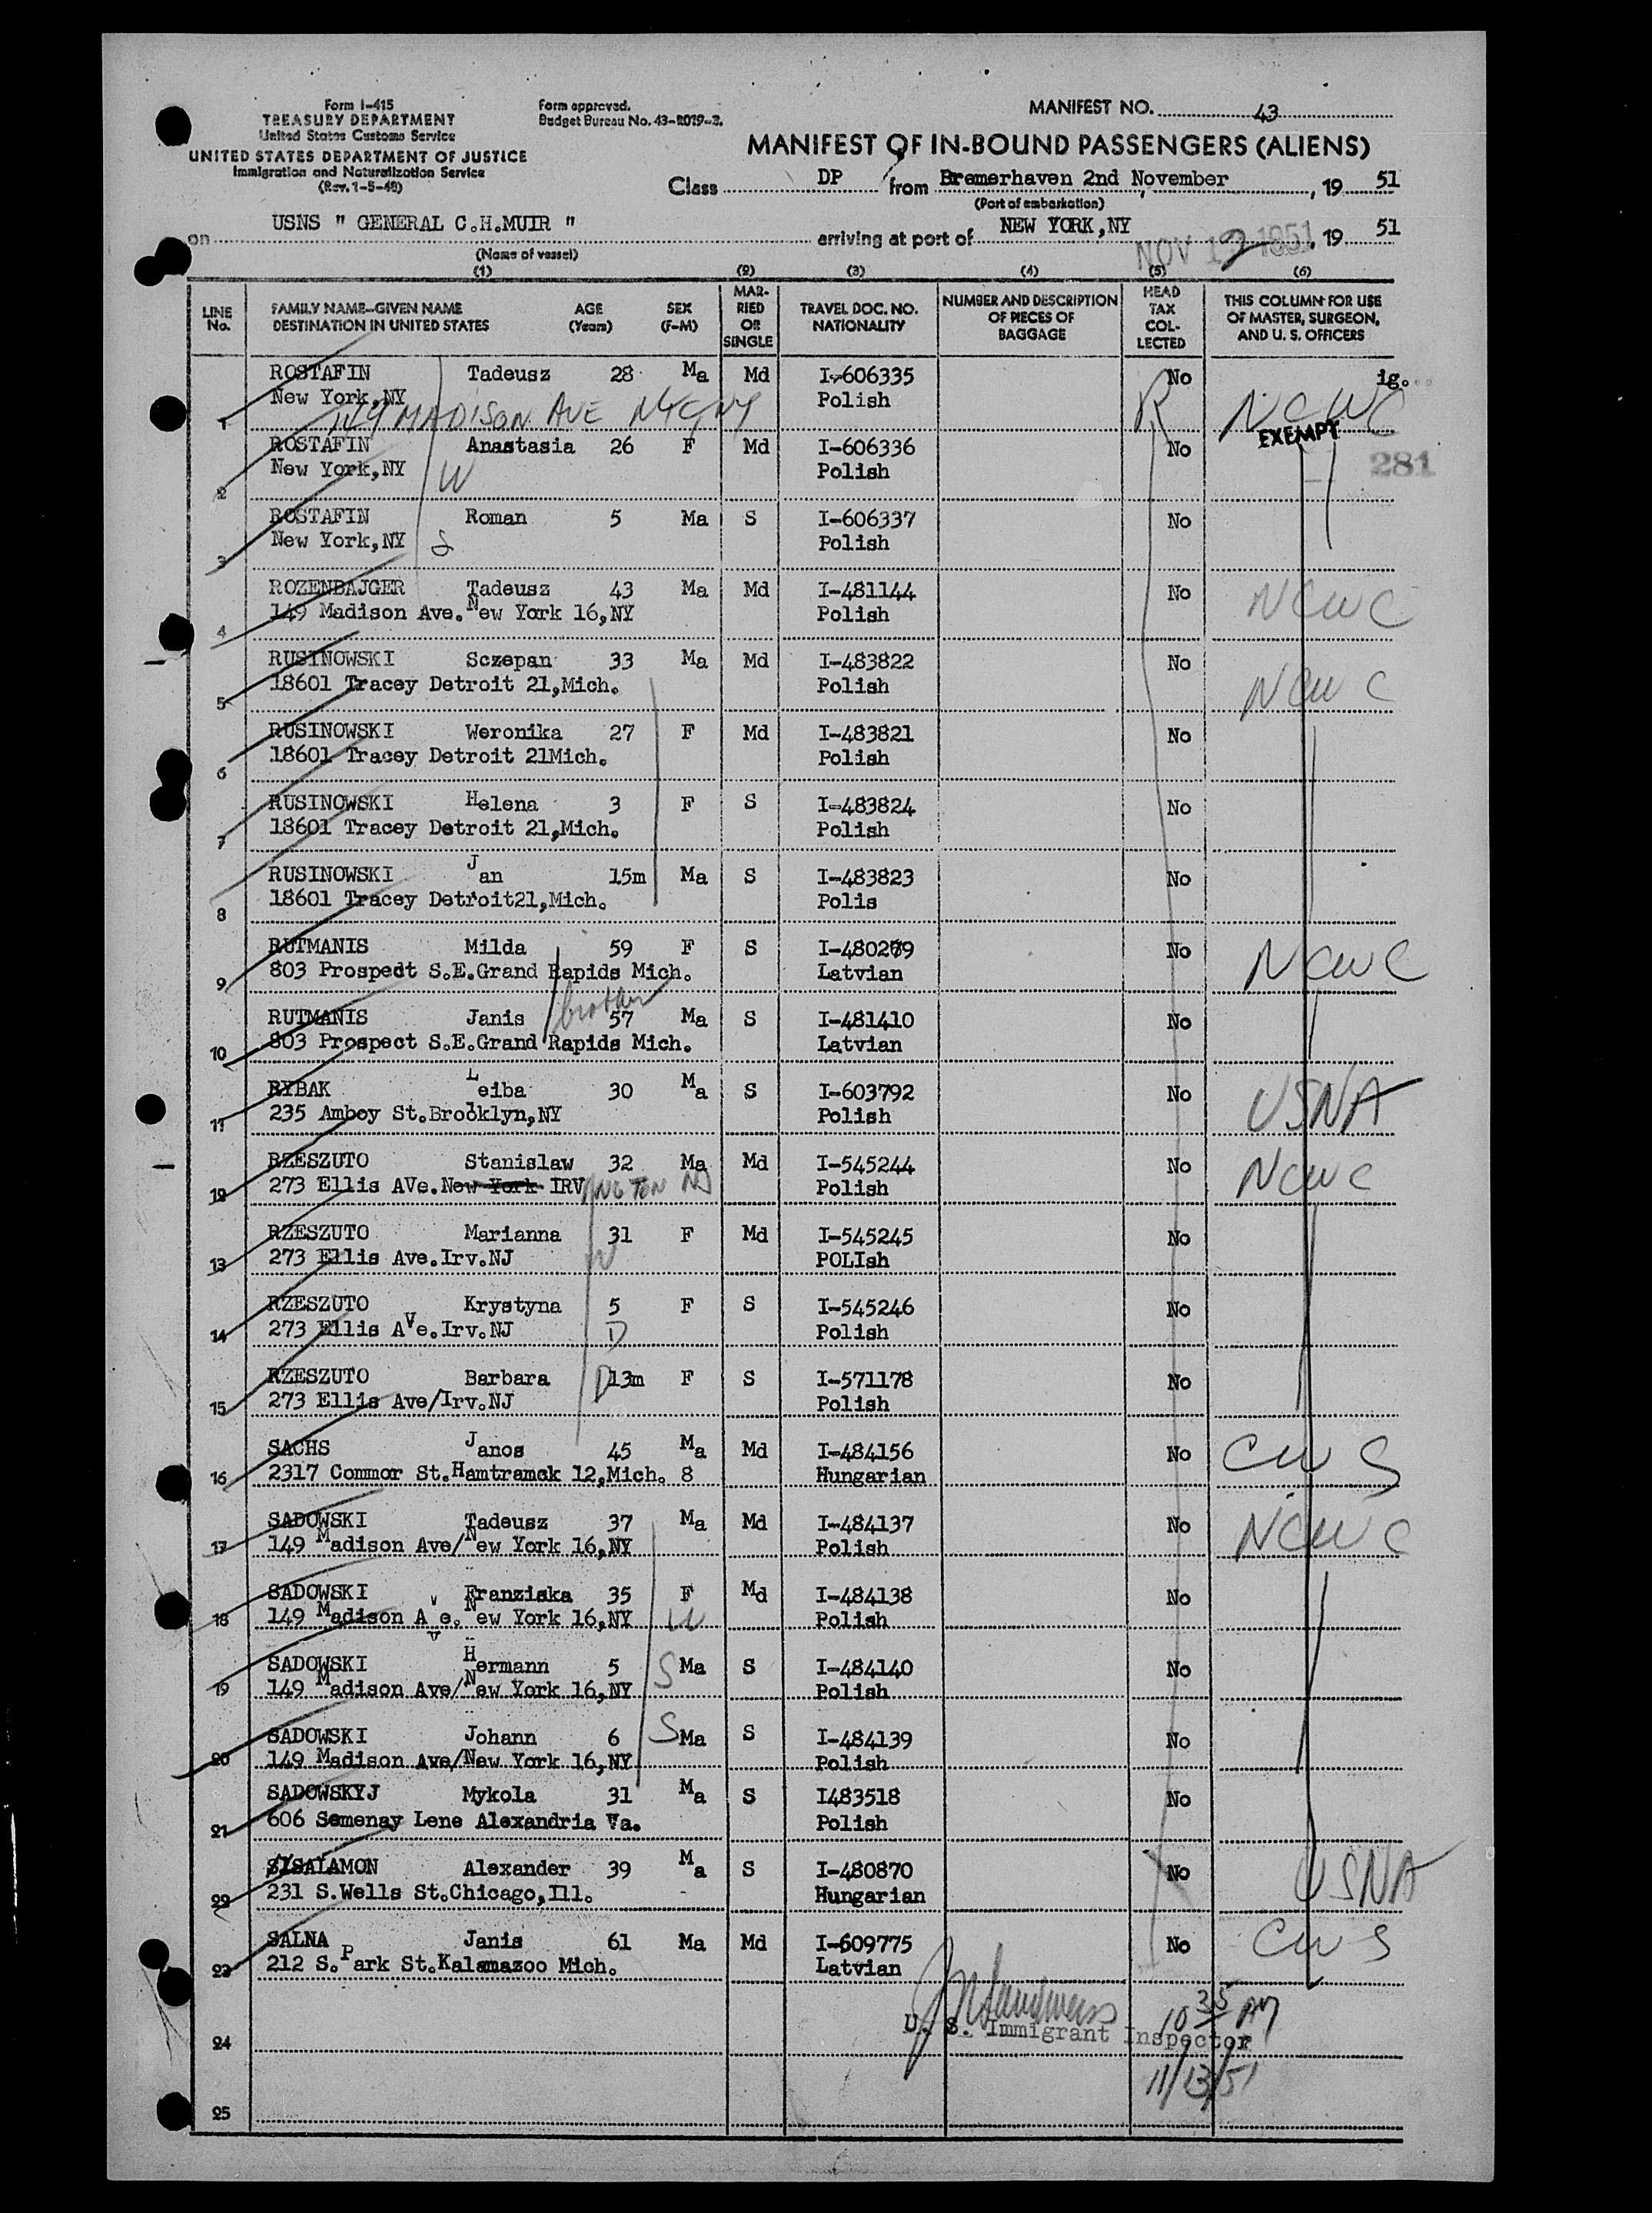 Form I-415
TREASURY DEPARTMENT
United States Customs Service
UNITED STATES DEPARTMENT OF JUSTICE
Immigration and Naturalization Service
(Rev. 1-5-48)
Form approved.
Budget Bureau No. 43-R079-3.
MANIFEST NO. 43
MANIFEST OF IN-BOUND PASSENGERS (ALIENS)
Class DP from Bremerhaven 2nd November, 19 51
(Port of embarkation)
on USNS " GENERAL C.H.MUIR " arriving at port of NEW YORK,NY, 19 51
(Name of vessel)
NOV 1951
(1) (2) (3) (4) (5) (6)
LINE No. FAMILY NAME—GIVEN NAME DESTINATION IN UNITED STATES AGE (Years) SEX (F-M) MARRIED OR SINGLE TRAVEL DOC. NO. NATIONALITY NUMBER AND DESCRIPTION OF PIECES OF BAGGAGE HEAD TAX COLLECTED THIS COLUMN FOR USE OF MASTER, SURGEON, AND U. S. OFFICERS
ROSTAFIN Tadeusz 28 Ma Md I-606335 No ig.
1 New York,NY 149 MADISON AVE NYC NY Polish R NCWC
EXEMPT
ROSTAFIN Anastasia 26 F Md I-606336 No
2 New York,NY W Polish 281
ROSTAFIN Roman 5 Ma S I-606337 No
3 New York,NY S Polish
ROZENBAJGER Tadeusz 43 Ma Md I-481144 No NCWC
4 149 Madison Ave. New York 16,NY Polish
RUSINOWSKI Sczepan 33 Ma Md I-483822 No NCWC
5 18601 Tracey Detroit 21,Mich. Polish
RUSINOWSKI Weronika 27 F Md I-483821 No
6 18601 Tracey Detroit 21Mich. Polish
RUSINOWSKI Helena 3 F S I-483824 No
7 18601 Tracey Detroit 21,Mich. Polish
RUSINOWSKI Jan 15m Ma S I-483823 No
8 18601 Tracey Detroit21,Mich. Polis
RUTMANIS Milda 59 F S No NCWC
9 803 Prospedt S.E.Grand Rapids Mich. Latvian
brother
RUTMANIS Janis 57 Ma S I-481410 No
10 803 Prospect S.E.Grand Rapids Mich. Latvian
RYBAK Leiba 30 Ma S I-603792 No USNA
11 235 Amboy St.Brooklyn,NY Polish
RZESZUTO Stanislaw 32 Ma Md I-545244 No NCWC
12 273 Ellis AVe.New York IRVINGTON NJ Polish
RZESZUTO Marianna 31 F Md I-545245 No
13 273 Ellis Ave.Irv.NJ W POLIsh
RZESZUTO Krystyna 5 F S I-545246 No
14 273 Ellis Ave.Irv.NJ D Polish
RZESZUTO Barbara D 13m F S I-571178 No
15 273 Ellis Ave/Irv.NJ Polish
SACHS Janos 45 Ma Md I-484156 No CWS
16 2317 Commor St.Hamtramck 12,Mich. 8 Hungarian
SADOWSKI Tadeusz 37 Ma Md I-484137 No NCWC
17 149 Madison Ave/New York 16,NY Polish
SADOWSKI Franziska 35 F Md I-484138 No
18 149 Madison Ave. New York 16,NY W Polish
SADOWSKI Hermann 5 S Ma S I-484140 No
19 149 Madison Ave/New York 16,NY Polish
SADOWSKI Johann 6 S Ma S I-484139 No
20 149 Madison Ave/New York 16,NY Polish
SADOWSKYJ Mykola 31 Ma S I483518 No
21 606 Semenay Lene Alexandria Va. Polish
SALAMON Alexander 39 Ma S I-480870 No USNA
22 231 S.Wells St.Chicago,Ill. Hungarian
SALNA Janis 61 Ma Md I-609775 No CWS
23 212 S.Park St.Kalamazoo Mich. Latvian
10 35 AM
U. S. Immigrant Inspector
24
11/13/51
25